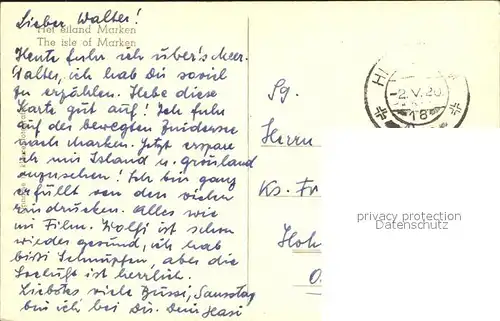 Lieber Walter!
Het eiland Marken
The isle of Marken
Heute fuhr ich über's Meer.
Walter, ich hab Dir soviel
zu erzählen. Hebe diese
Karte gut auf! Ich fuhr
auf der bewegten Zuidersee
nach Marken. Jetzt erspare
ich mir Island u. Grönland
anzusehen! Ich bin ganz
erfüllt von den vielen
Eindrücken. Alles wie
im Film. Wolfi ist schon
wieder gesund, ich hab
bissi Schnupfen, aber die
Seeluft ist herrlich.
Liebster viele Bussi, Samstag
bin ich bei Dir. Dein Hasi
H
-2.V.
18
Sg.
Herrn
Ks. Fr
Hoh
O.
privacy protection
Datenschutz